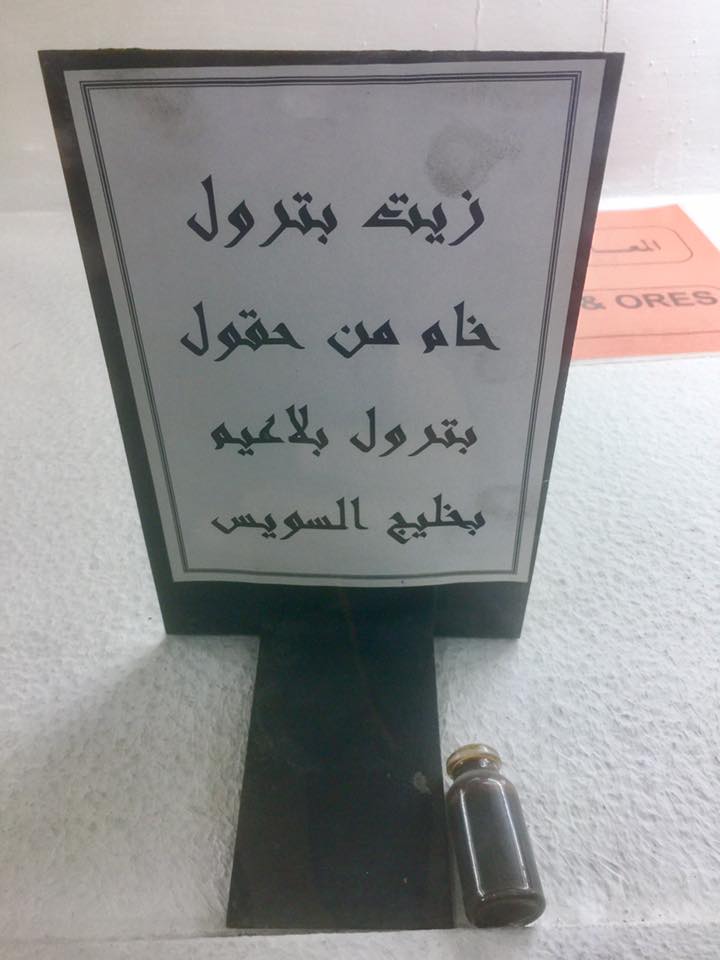 زيت بترول
خام من حقول
بترول بلاعيم
بخليج السويس
& ORES